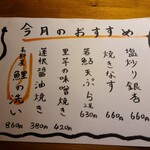 今月のおすすめ
塩炒り銀杏
660円
焼きなす
660円
若鮎天ぷら
630円
里芋の味噌焼き
420円
蓮根醤油焼き
380円
鯉の洗い
860円